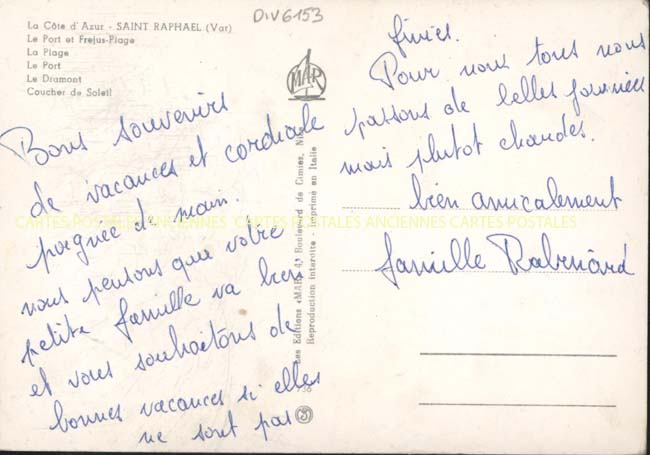 DIV6153
La Côte d'Azur - SAINT RAPHAEL (Var)
Le Port et Frejus-Plage
La Plage
Le Port
Le Dramont
Coucher de Soleil
MAR
Bons souvenirs
de vacances et cordiale
poignée de main.
nous pensons que votre
petite famille va bien
et vous souhaitons de
bonnes vacances si elles
ne sont pas
finies.
Pour nous tous nous
passons de belles journées
mais plutot chaudes.
bien amicalement
famille
Les Editions «MAR» 43 Boulevard de Cimiez, Nice
Reproduction interdite - imprimé en Italie
CARTES POSTALES ANCIENNES CARTES POSTALES ANCIENNES CARTES POSTALES